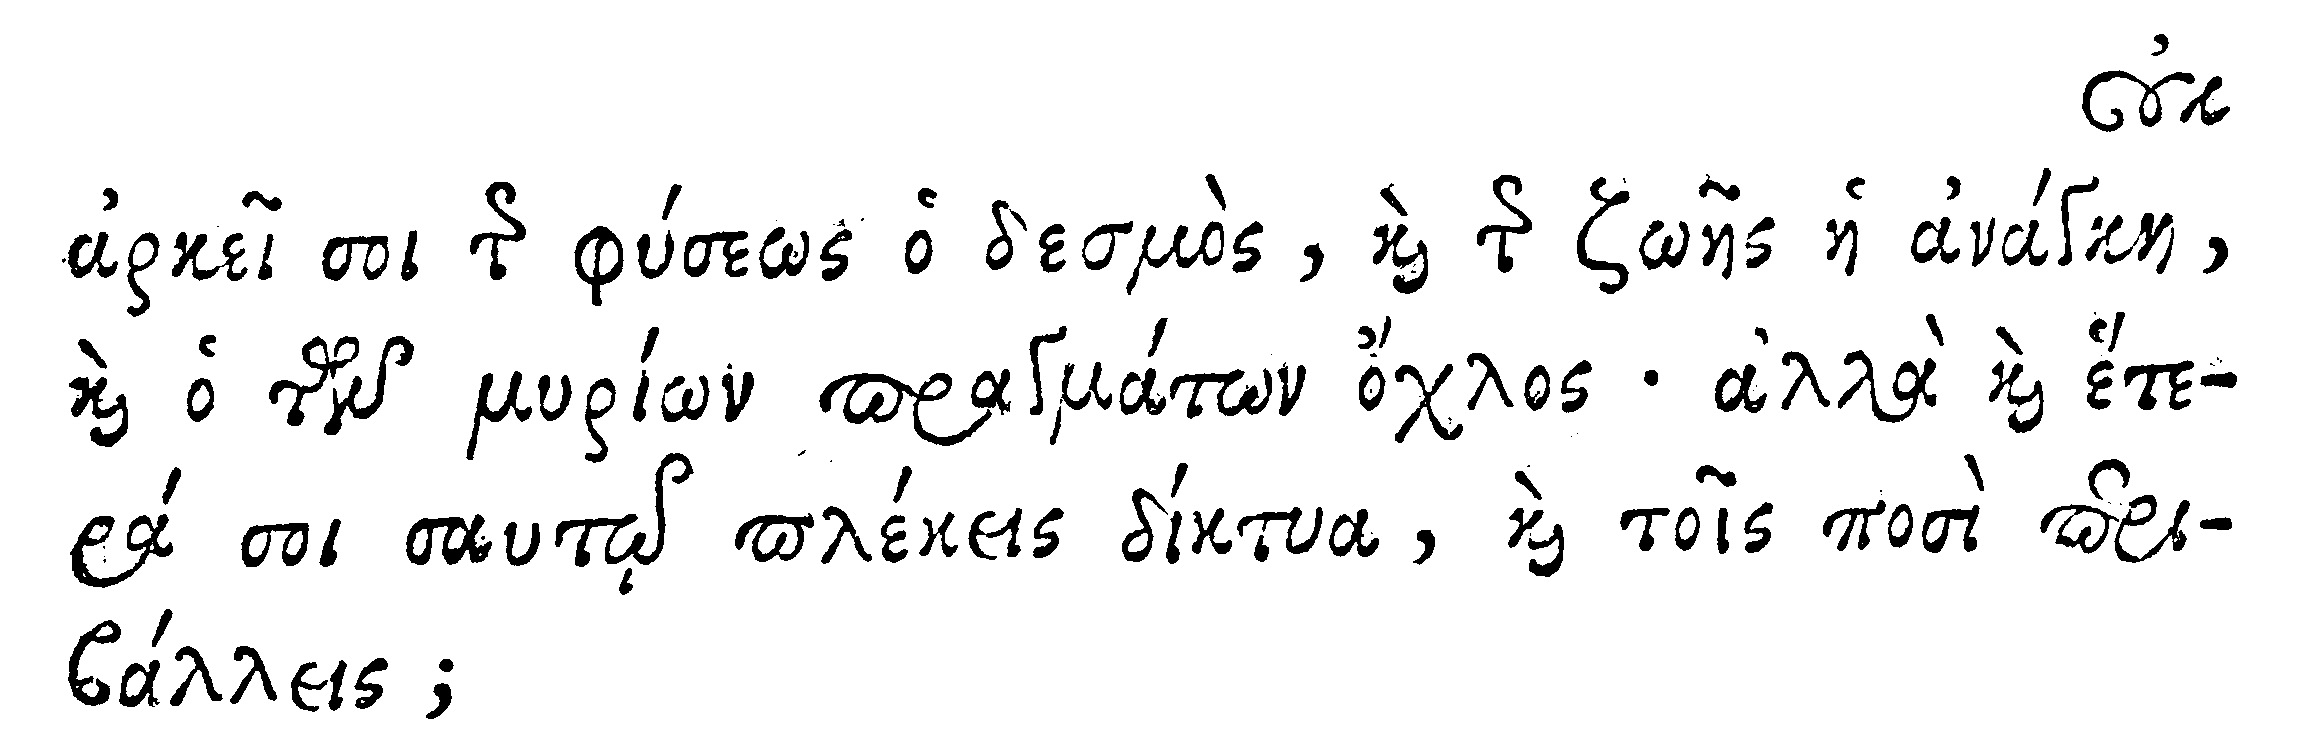 οὐκ
ἀρκεῖ σοι τῆς φύσεως ὁ δεσμὸς, καὶ τῆς ζωῆς ἡ ἀνάγκη,
καὶ ὁ τῶν μυρίων πραγμάτων ὄχλος · ἀλλὰ καὶ ἕτε-
ρά σοι σαυτῷ πλέκεις δίκτυα, καὶ τοῖς ποσὶ περι-
βάλλεις ;